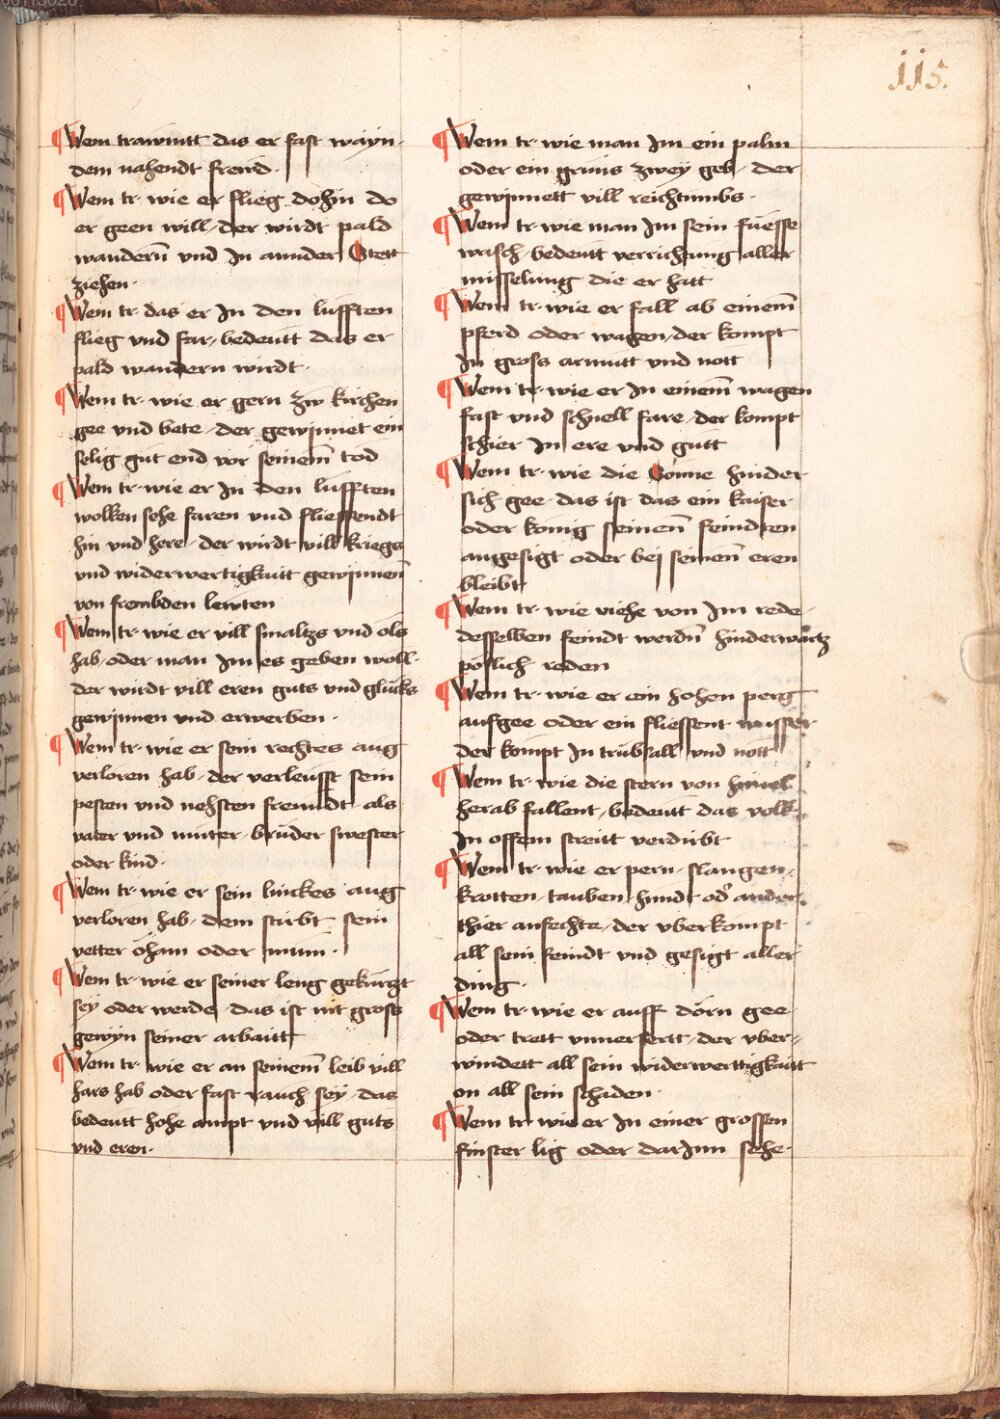 115.
¶ Wem trawmtt das er fast wayn·
dem nahendt frewd·
¶ Wem tr· wie er flieg dohin do
er geen will / der wirdt pald
wandern̄ vnd In annder Stett
ziehen·
¶ Wem tr· das er In den lufften
flieg vnd far / bedeutt das er
pald wandern wirdt·
¶ Wem tr· wie er gern zw kirchen
gee vnd bete / der gewinnet ein
selig gut end vor seinem̄ tod
¶ Wem tr· wie er In den lufften
wolken sehe faren vnd fliessendt
hin vnd here / der wirdt vill kriegs
vnd widerwertigkaitt gewinnen̄
von frembden lewten
¶ Wem tr· wie er vill smaltzs vnd ols
hab / oder man Im es geben woll·
der wirdt vill eren guts vnd glucks
gewinnen vnd erwerben·
¶ Wem tr· wie er sein rechtes aug
verloren hab / der verleusst sein
pesten vnd nehsten freundt als
vater vnd muter / bruder swester
oder kind·
¶ Wem tr· wie er sein linckes aug
verloren hab / dem stirbt sein
vetter öham oder mum·
¶ Wem tr· wie er seiner leng gekurtzt
sey oder werde / das ist mit gross
gewyn seiner arbaitt
¶ Wem tr· wie er an seinem̄ leib vill
hars hab oder fast rauch sey / das
bedeutt hohe ampt vnd vill guts
vnd eren·
¶ Wem tr· wie man Im ein palm
oder ein gruns zwey geb / der
gewinnett vill reichtumbs·
¶ Wem tr· wie man Im sein fuesse
wasch / bedeutt verrichung aller
misselung die er hatt
¶ Wem tr· wie er fall ab einem̄
pferd oder wagen / der kompt
In gross armutt vnd nott
¶ Wem tr· wie er In einem̄ wagen
fast vnd schnell fare / der kompt
schier In ere vnd gutt
¶ Wem tr· wie die Sonne hinder
sich gee / das ist das ein kaiser
oder konig seinen̄ feindten
angesigt oder bei seinen̄ eren
bleibt
¶ Wem tr· wie viehe von Im rede /
desselben feindt werdn̄ hinderwartz
poslich reden
¶ Wem tr· wie er ein hohen perg
aufgee oder ein fliessent wasser
der kompt In trubsall vnd nott
¶ Wem tr· wie die stern von himel
herab fallent / bedeutt das volk
In offem streitt verdirbt
¶ Wem tr· wie er pern / slangen /
krotten / tauben / hund / od' ander
thier anfechte / der vberkompt
all sein feindt vnd gesigt aller
ding·
¶ Wem tr· wie er auff dörn gee
oder trett vnuersertt / der vber=
windett all sein widerwerttigkaitt
on all sein schaden·
¶ Wem tr· wie er In einer grossen
finster lig oder darInn sehe·